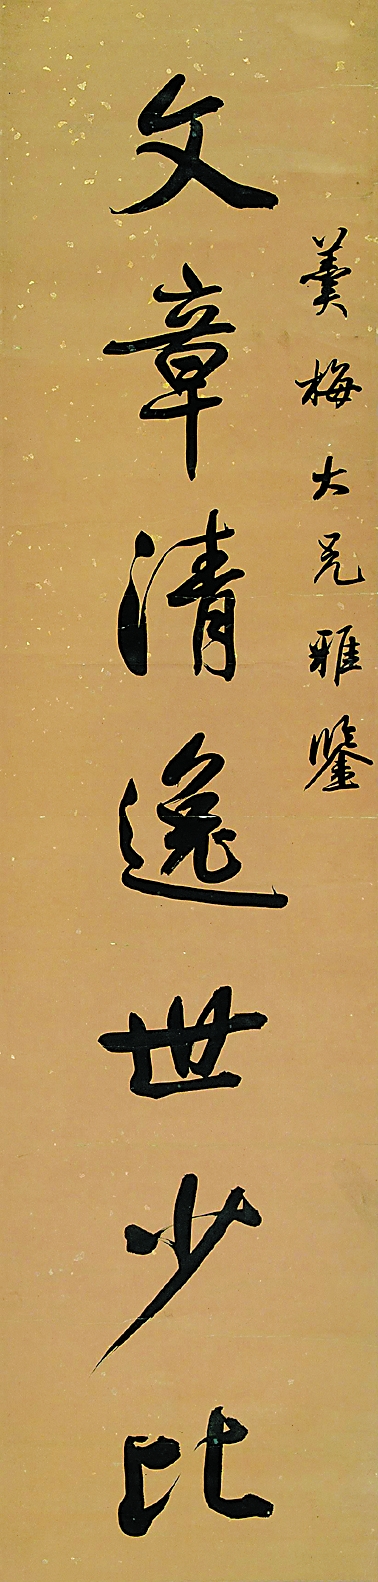 羹梅大兄雅鑒
文章清逸世少比